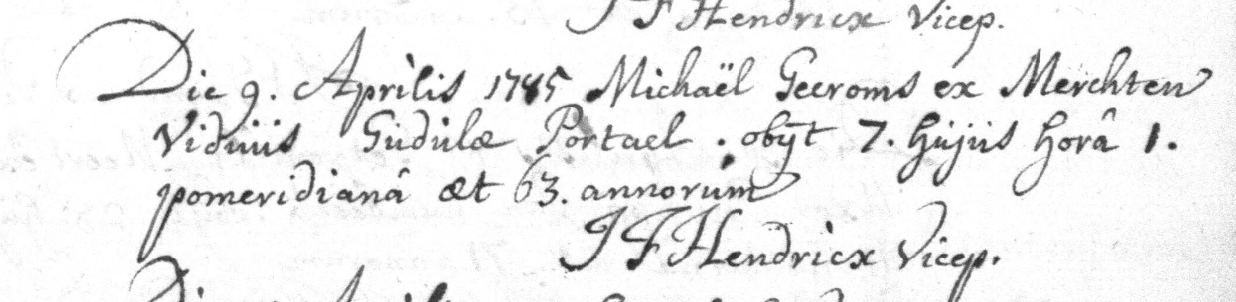 J F Hendricx Vicep.
Die 9. Aprilis 1785 Michaël Geeroms ex Merchten
Viduus Gudulæ Portael. obÿt 7. hujus horâ 1.
pomeridianâ æt 63. annorum
J F Hendricx Vicep.